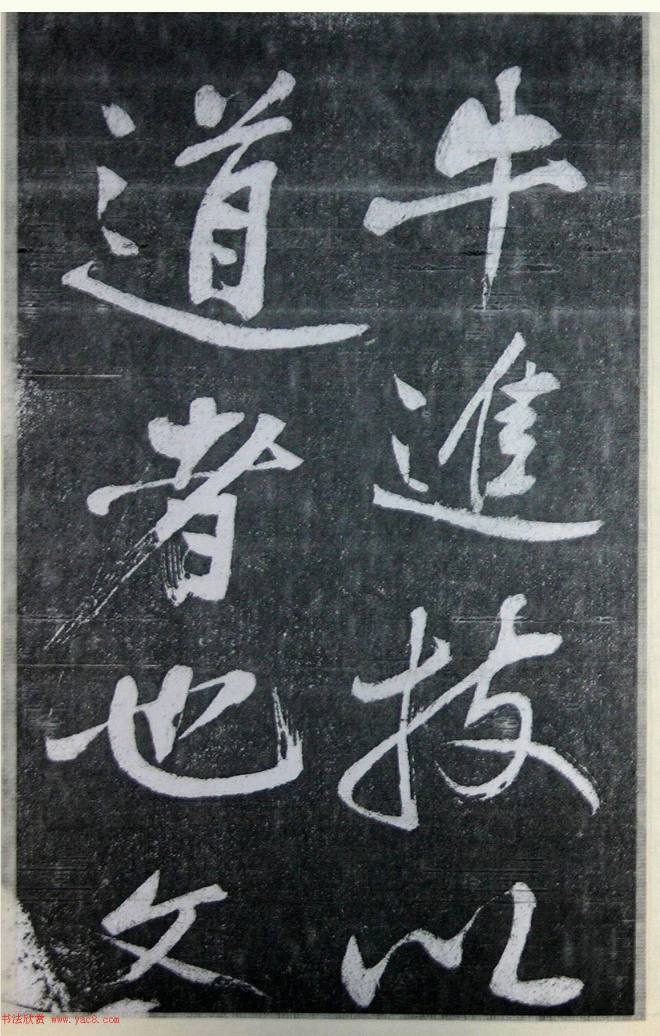 牛進技以
道者也文
书法欣赏 www.yac8.com